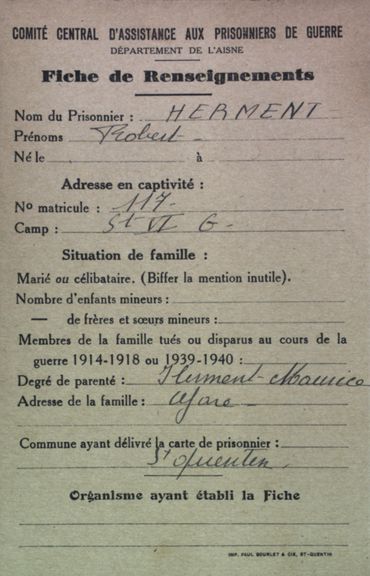 COMITÉ CENTRAL D'ASSISTANCE AUX PRISONNIERS DE GUERRE
DÉPARTEMENT DE L'AISNE
Fiche de Renseignements
Nom du Prisonnier : HERMENT
Prénoms Robert
Né le à
Adresse en captivité :
No matricule : 117
Camp : St VI G
Situation de famille :
Marié ou célibataire. (Biffer la mention inutile).
Nombre d'enfants mineurs :
— de frères et sœurs mineurs :
Membres de la famille tués ou disparus au cours de la
guerre 1914-1918 ou 1939-1940 :
Degré de parenté : Herment Maurice
Adresse de la famille :
Commune ayant délivré la carte de prisonnier :
St Quentin
Organisme ayant établi la Fiche
IMP. PAUL BOURLET & CIE, ST-QUENTIN